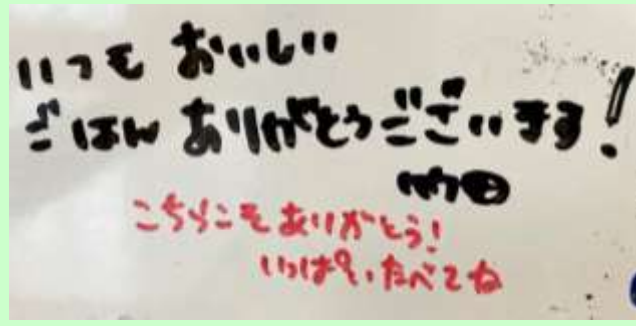 いつも おいしい
ごはん ありがとうございます!
こちらこそありがとう!
いっぱいたべてね